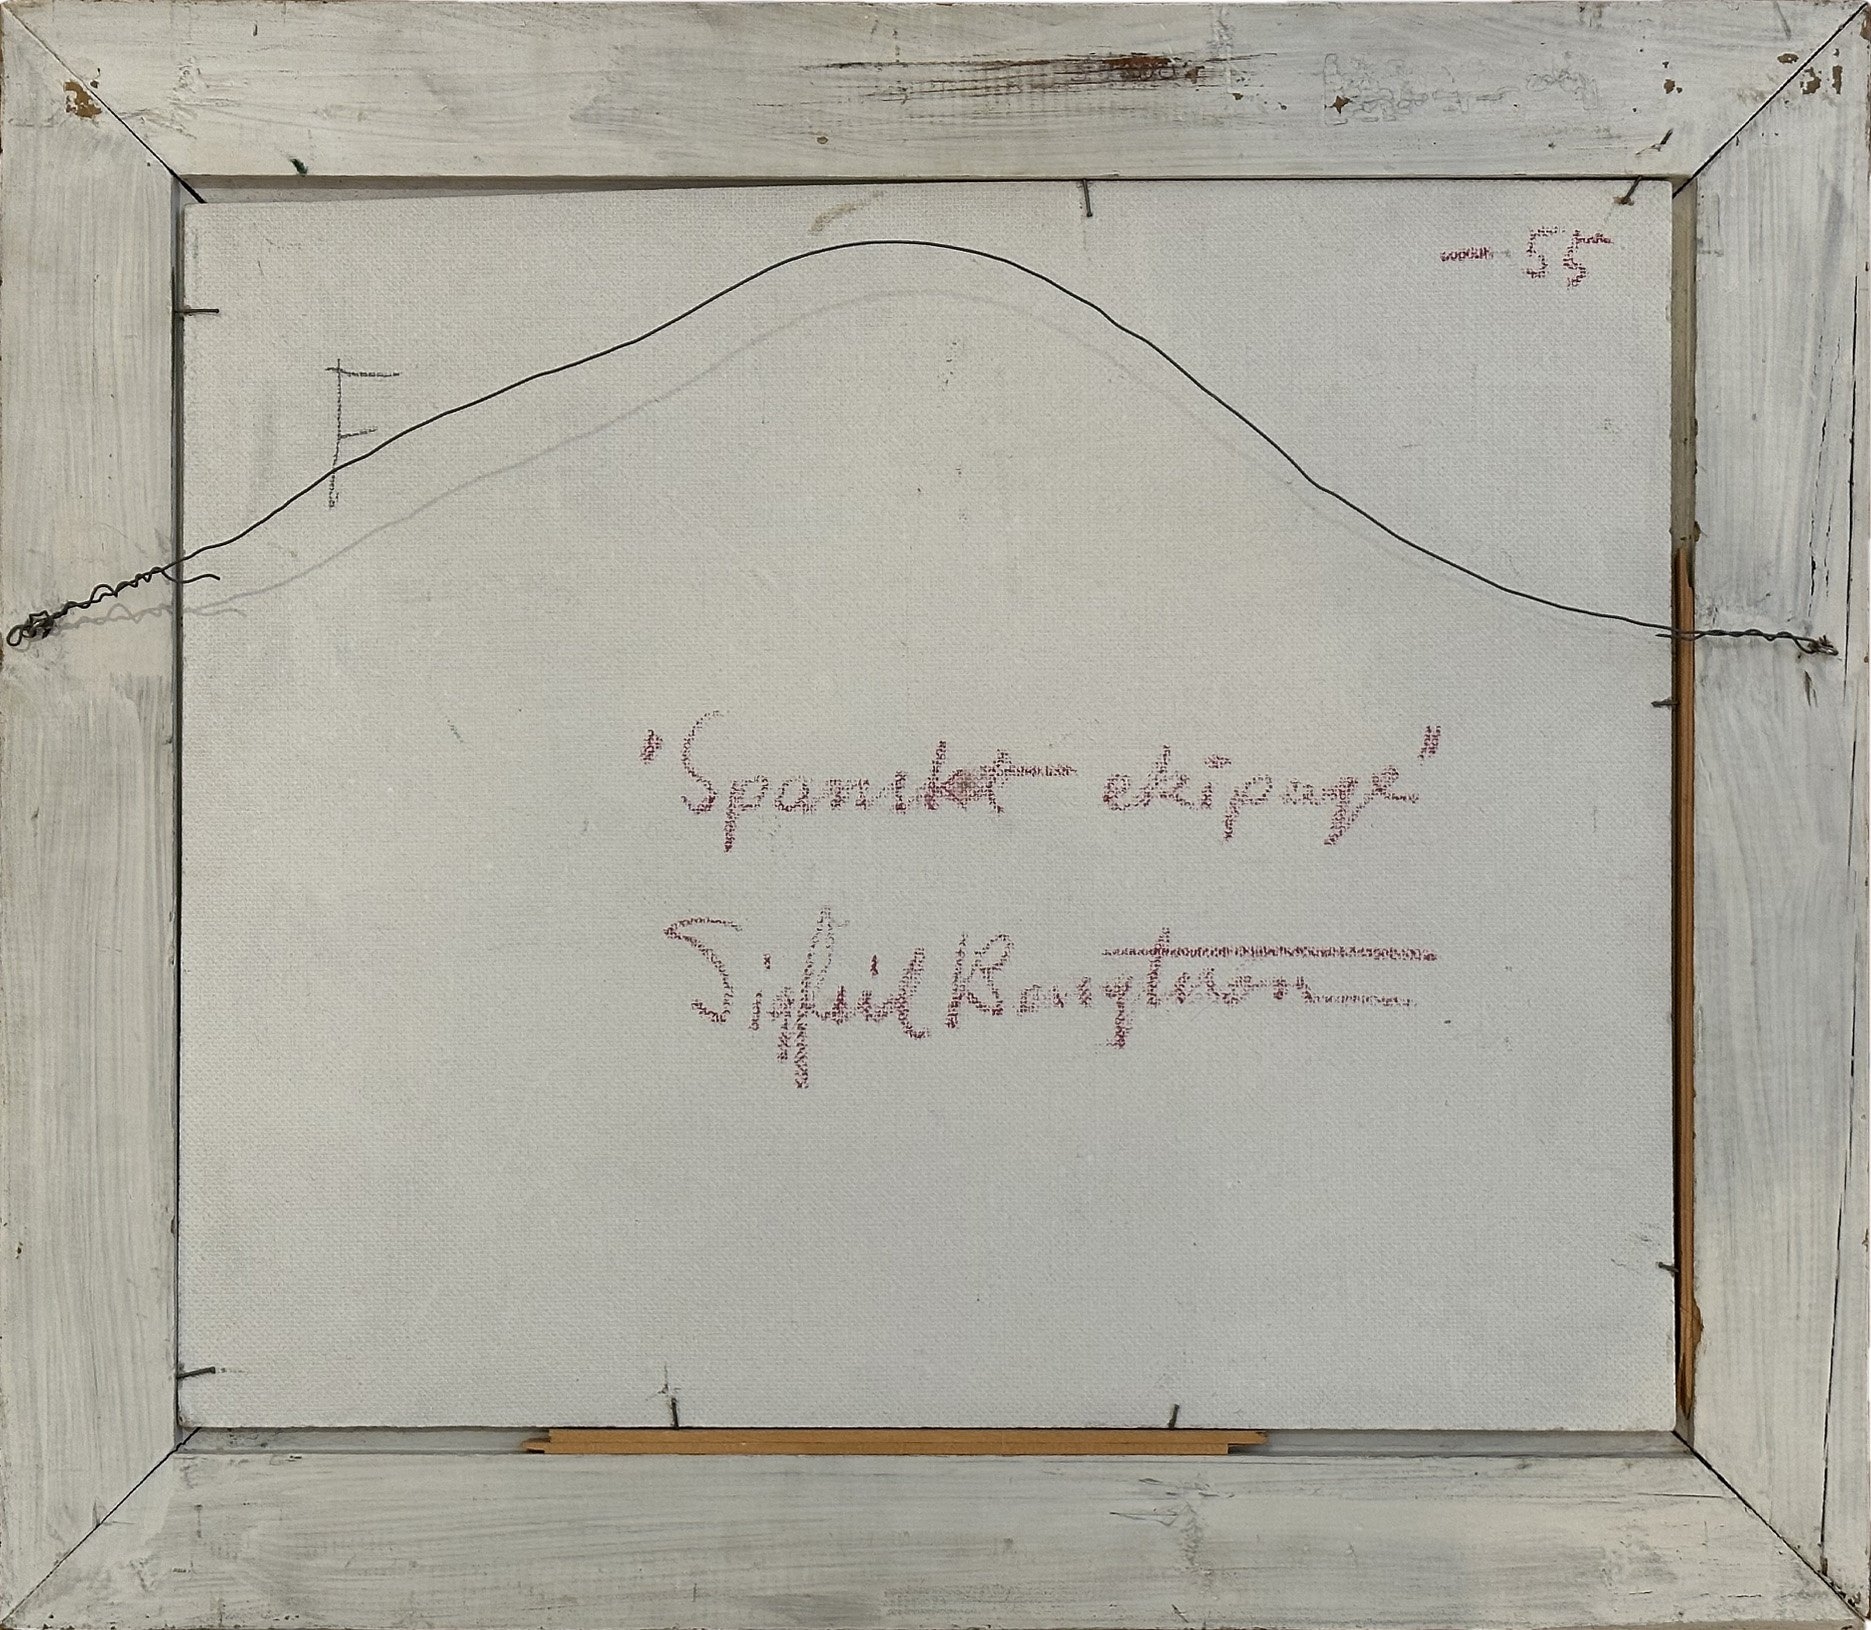 — 55
F
"Spanskt ekipage"
Sigfrid Bengtson